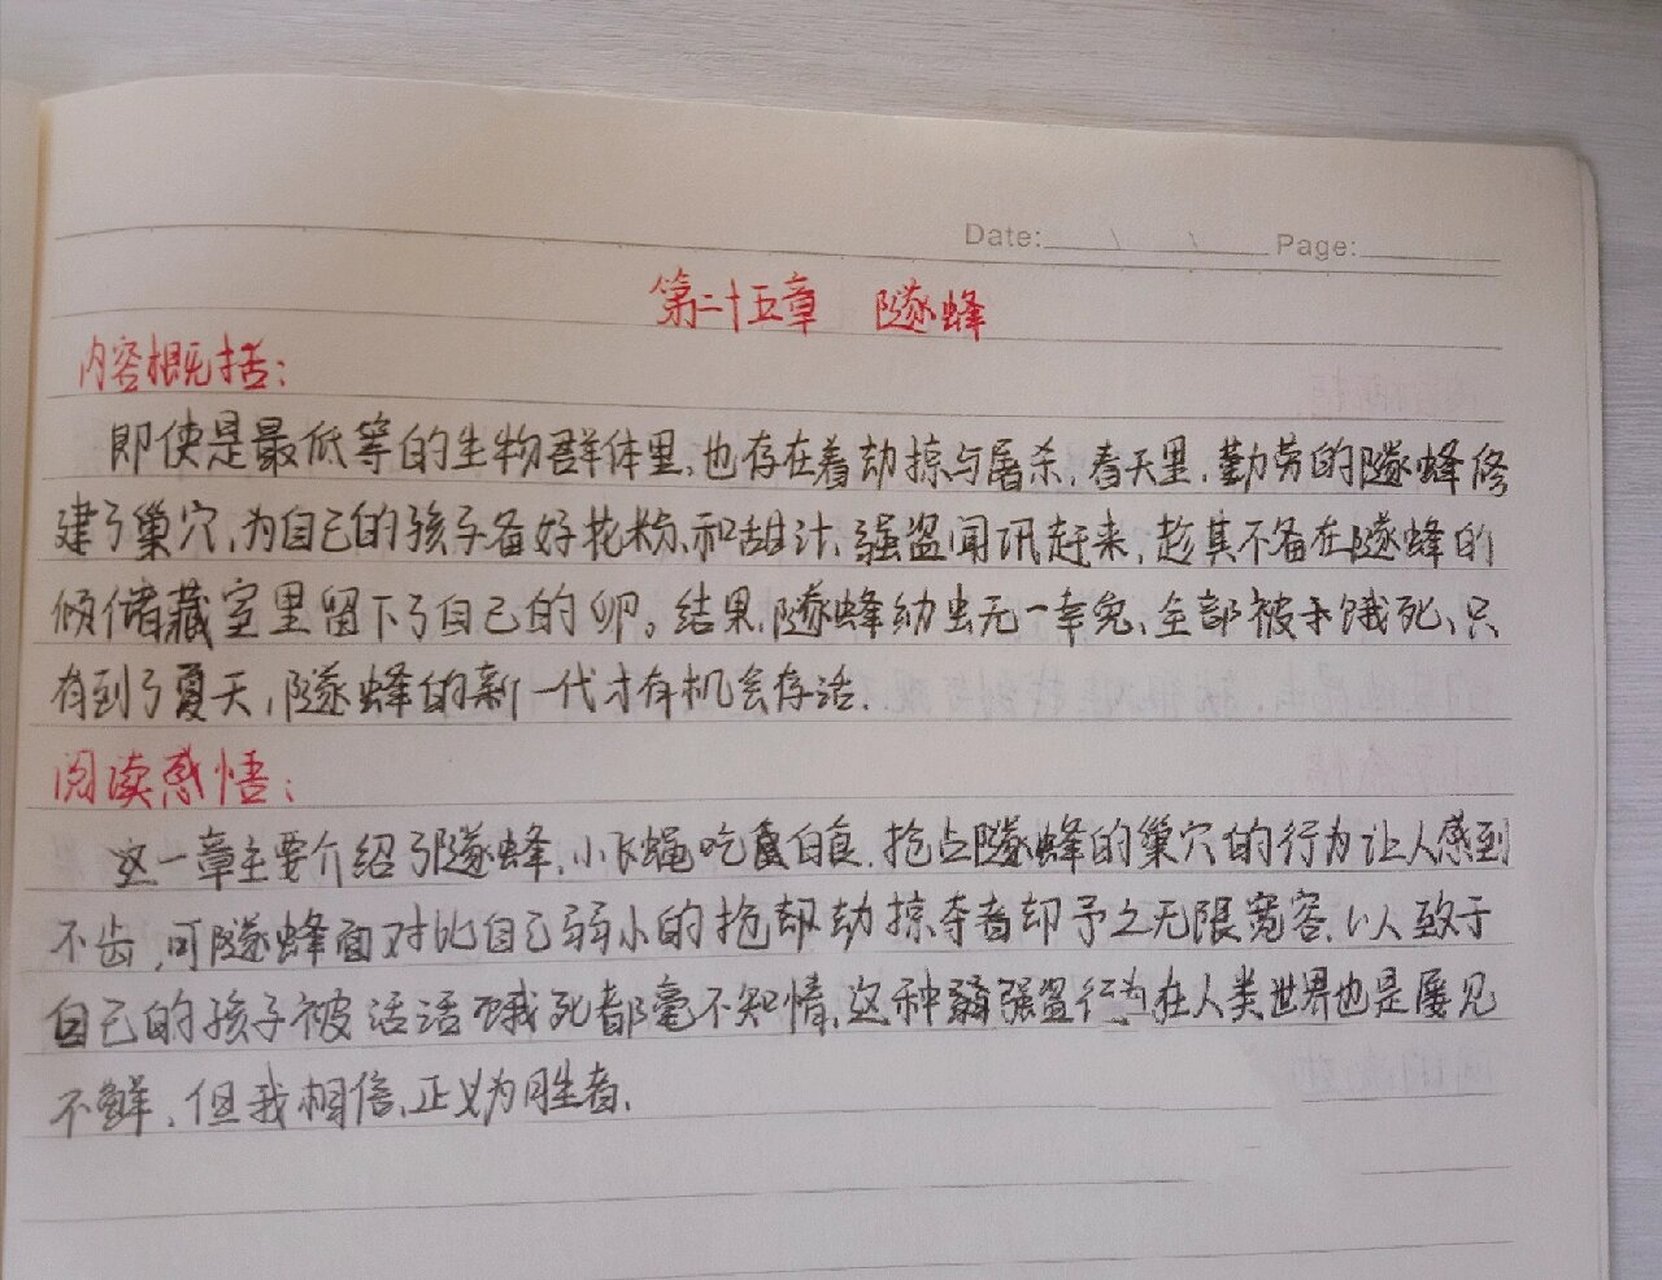 Date: / / Page:
第二十五章 隧蜂
内容概括：
即使是最低等的生物群体里，也存在着劫掠与屠杀，春天里，勤劳的隧蜂修
建了巢穴，为自己的孩子备好花粉和甜汁，强盗闻讯赶来，趁其不备在隧蜂的
储藏室里留下了自己的卵。结果，隧蜂幼虫无一幸免，全部被饿死，只
有到了夏天，隧蜂的新一代才有机会存活．
阅读感悟：
这一章主要介绍了隧蜂，小飞蝇吃白食，抢占隧蜂的巢穴的行为让人感到
不齿，可隧蜂面对比自己弱小的劫掠夺者却予之无限宽容，以人致于
自己的孩子被活活饿死都毫不知情，这种强盗行为在人类世界也是屡见
不鲜，但我相信，正义为胜者．